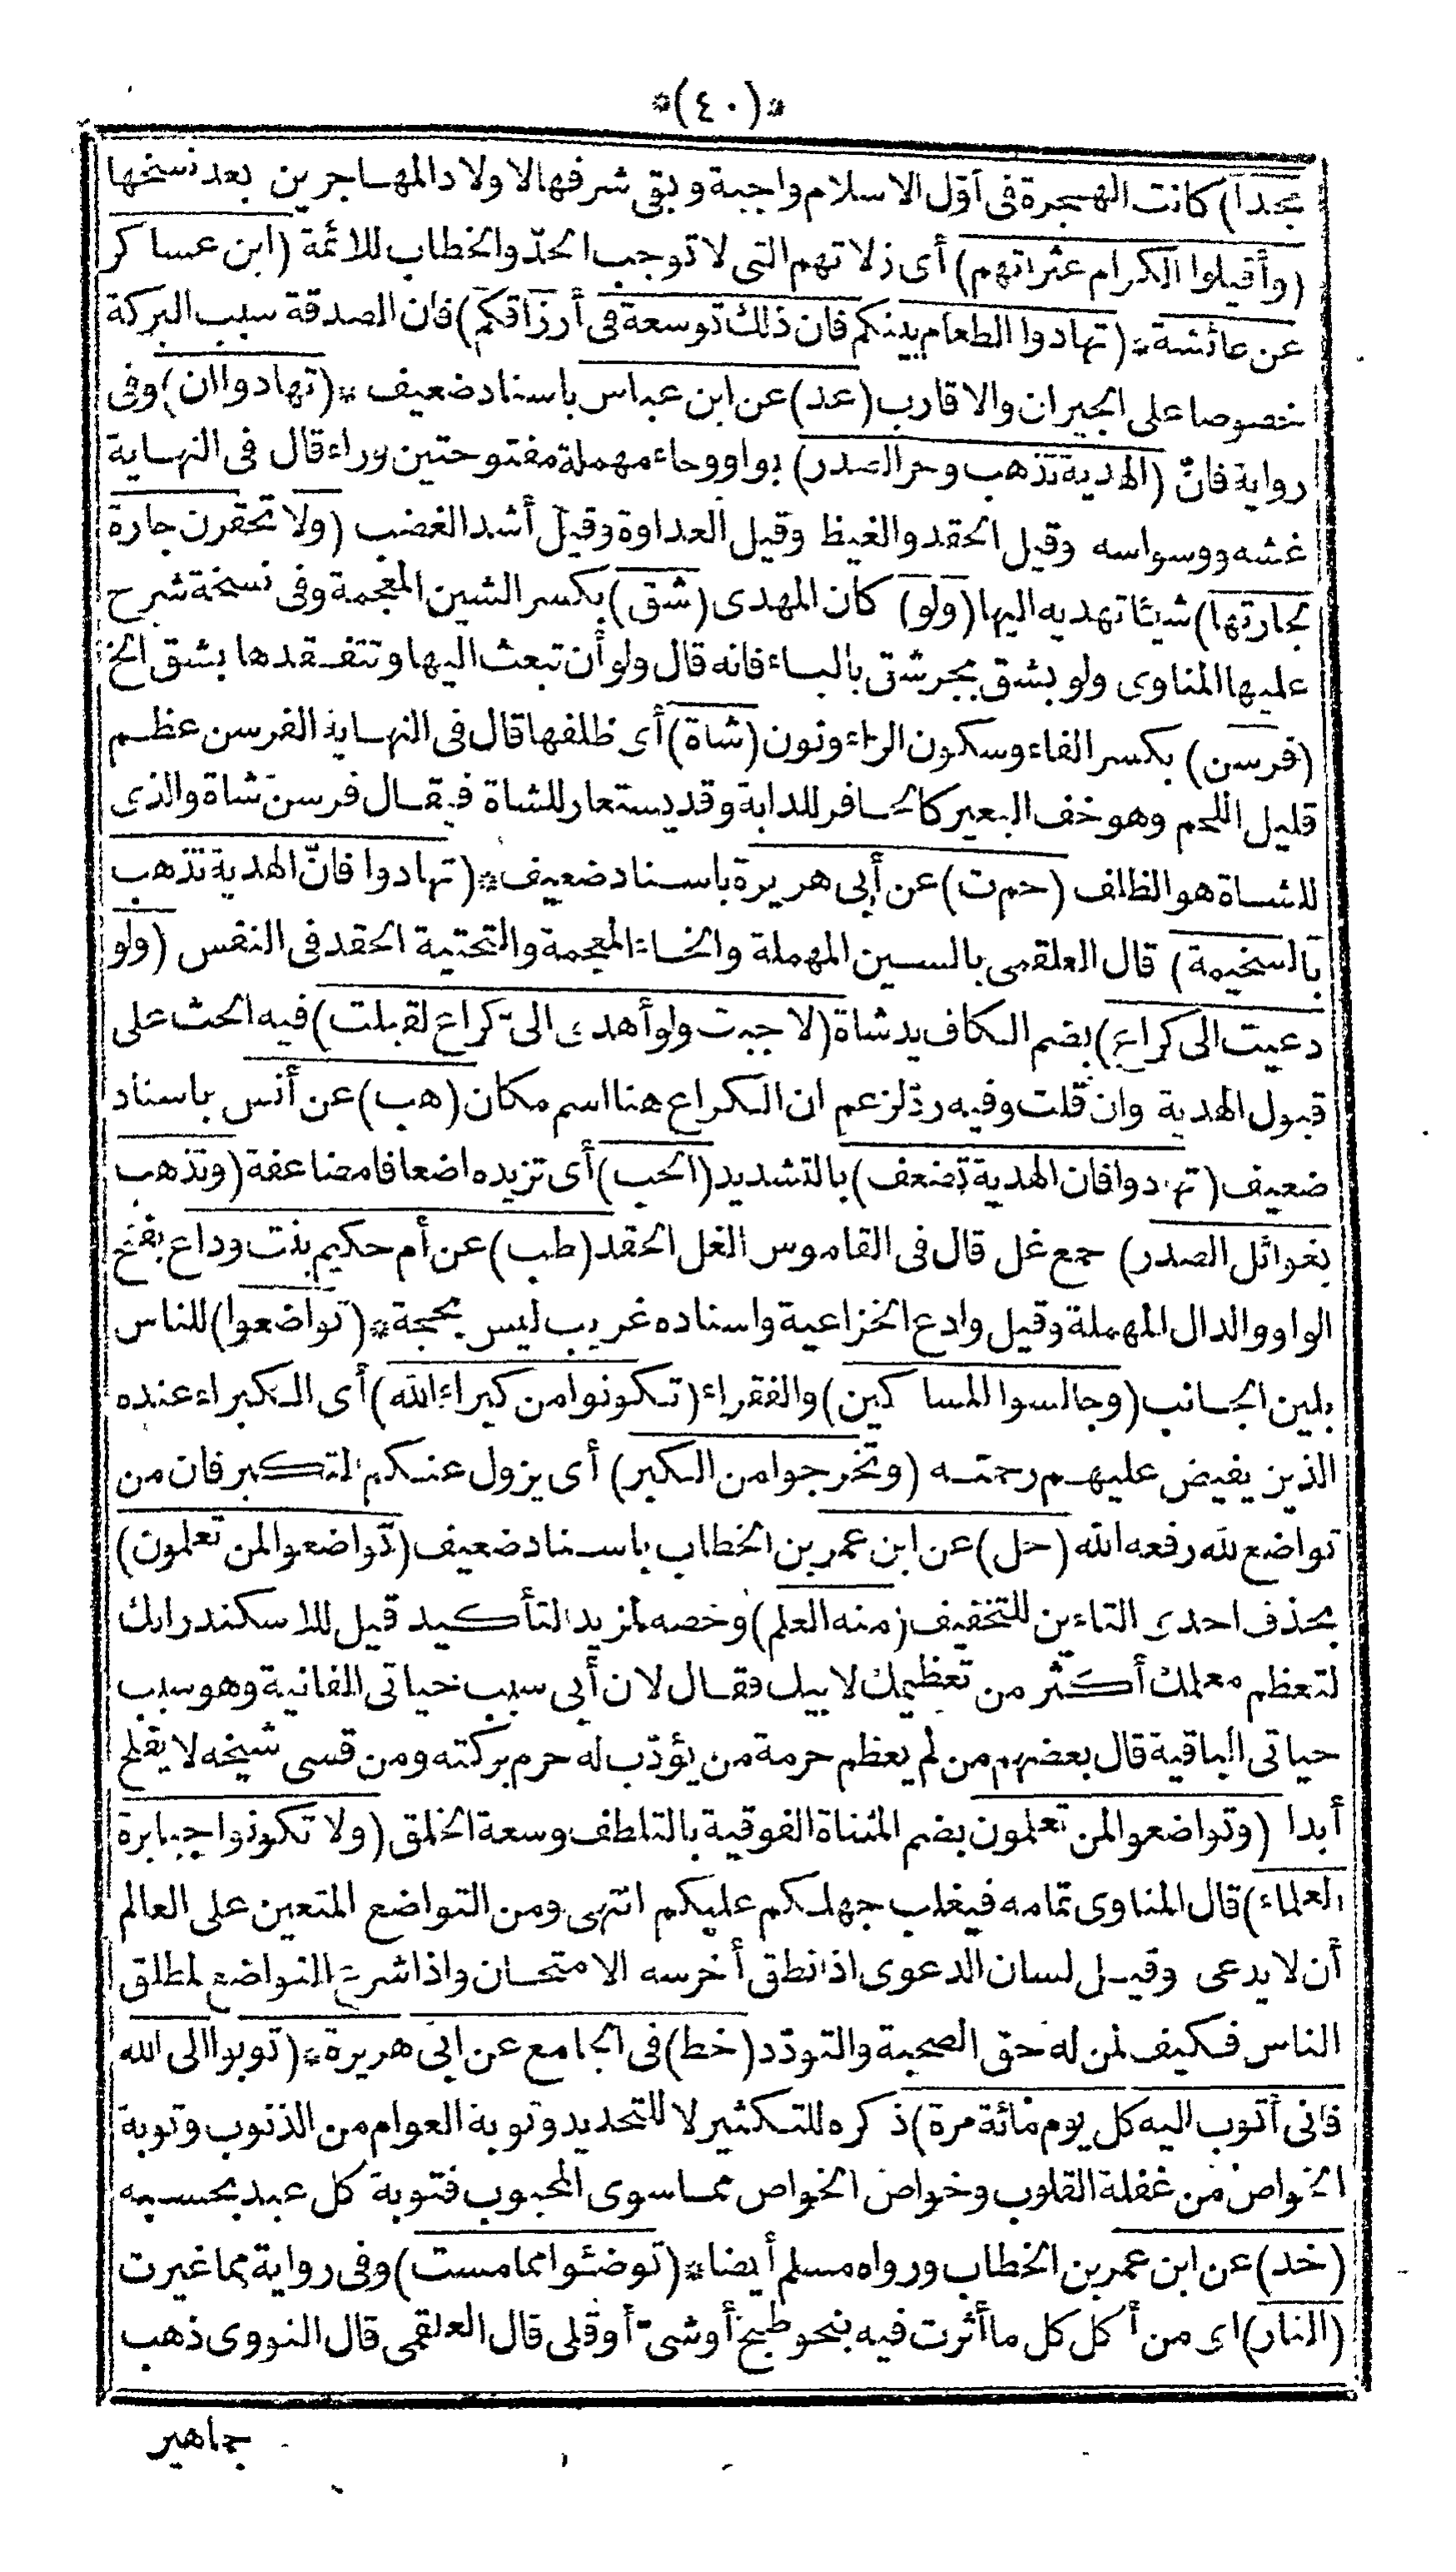 *(٤٠)*
مجدا) كانت الهجرة فى أوّل الاسلام واجبة وبقى شرفها لاولاد المهاجرين بعد نسخها
(وأقيلوا الكرام عثراتهم) أى زلاتهم التى لا توجب الحدّ والخطاب للائمة (ابن عساكر
عن عائشة * (تهادوا الطعام بينكم فان ذلك توسعة فى أرزاقكم) فان الصدقة سبب البركة
خصوصا على الجيران والاقارب (عد) عن ابن عباس باسناد ضعيف * (تهادوا ان) وفى
رواية فانّ (الهدية تذهب وحر الصدر) بواو وحاء مهملة مفتوحتين وراء قال فى النهاية
غشه ووسواسه وقيل الحقد والغيظ وقيل العداوة وقيل أشد الغضب (ولا تحقرن جارة
لجارتها) شيئا تهديه اليها (ولو) كان المهدى (شق) بكسر الشين المعجمة وفى نسخة شرح
عليها المناوى ولو بشق بجر شق بالباء فانه قال ولو أن تبعث اليها وتتفقدها بشق الخ
(فرسن) بكسر الفاء وسكون الراء ونون (شاة) أى ظلفها قال فى النهاية الفرسن عظم
قليل اللحم وهو خف البعير كالحافر للدابة وقد يستعار للشاة فيقال فرسن شاة والذى
للشاة هو الظلف (حم ت) عن أبى هريرة باسناد ضعيف * (تهادوا فانّ الهدية تذهب
بالسخيمة) قال العلقمى بالسين المهملة والخاء المعجمة والتحتية الحقد فى النفس (ولو
دعيت الى كراع) بضم الكاف يد شاة (لاجبت ولو أهدى الىّ كراع لقبلت) فيه الحث على
قبول الهدية وان قلت وفيه ردّ لزعم ان الكراع هنا اسم مكان (هب) عن أنس باسناد
ضعيف (تهادوا فان الهدية تضعف) بالتشديد (الحب) أى تزيده اضعافا مضاعفة (وتذهب
بغوائل الصدر) جمع غل قال فى القاموس الغل الحقد (طب) عن أم حكيم بنت وداع بفتح
الواو والدال المهملة وقيل وادع الخزاعية واسناده غريب ليس بحجة * (تواضعوا) للناس
بلين الجانب (وجالسوا المساكين) والفقراء (تكونوا من كبراء الله) أى الكبراء عنده
الذين يفيض عليهم رحمته (وتخرجوا من الكبر) أى يزول عنكم التكبر فان من
تواضع لله رفعه الله (حل) عن ابن عمر بن الخطاب باسناد ضعيف (تواضعوا لمن تعلمون)
بحذف احدى التاءين للتخفيف (منه العلم) وخصه لمزيد التأكيد قيل للاسكندر انك
لتعظم معلمك أكثر من تعظيمك لابيك فقال لان أبى سبب حياتى الفانية وهو سبب
حياتى الباقية قال بعضهم من لم يعظم حرمة من يؤدّب له حرم بركته ومن قسى شيخه لا يفلح
أبدا (وتواضعوا لمن تعلمون بضم المثناة الفوقية بالتلطف وسعة الخلق (ولا تكونوا جبابرة
العلماء) قال المناوى تمامه فيغلب جهلكم عليكم انتهى ومن التواضع المتعين على العالم
أن لا يدعى وقيل لسان الدعوى اذا نطق أخرسه الامتحان واذا شرع التواضع لمطلق
الناس فكيف لمن له حق الصحبة والتودّد (خط) فى الجامع عن ابى هريرة * (توبوا الى الله
فانى أتوب اليه كل يوم مائة مرة) ذكره للتكثير لا للتحديد وتوبة العوام من الذنوب وتوبة
الخواص من غفلة القلوب وخواص الخواص مما سوى المحبوب فتوبة كل عبد بحسبه
(خد) عن ابن عمر بن الخطاب ورواه مسلم أيضا * (توضئوا مما مست) وفى رواية مما غيرت
(النار) اى من أكل كل ما أثرت فيه بنحو طبخ أو شىّ أو قلى قال العلقمى قال النووى ذهب
جماهير